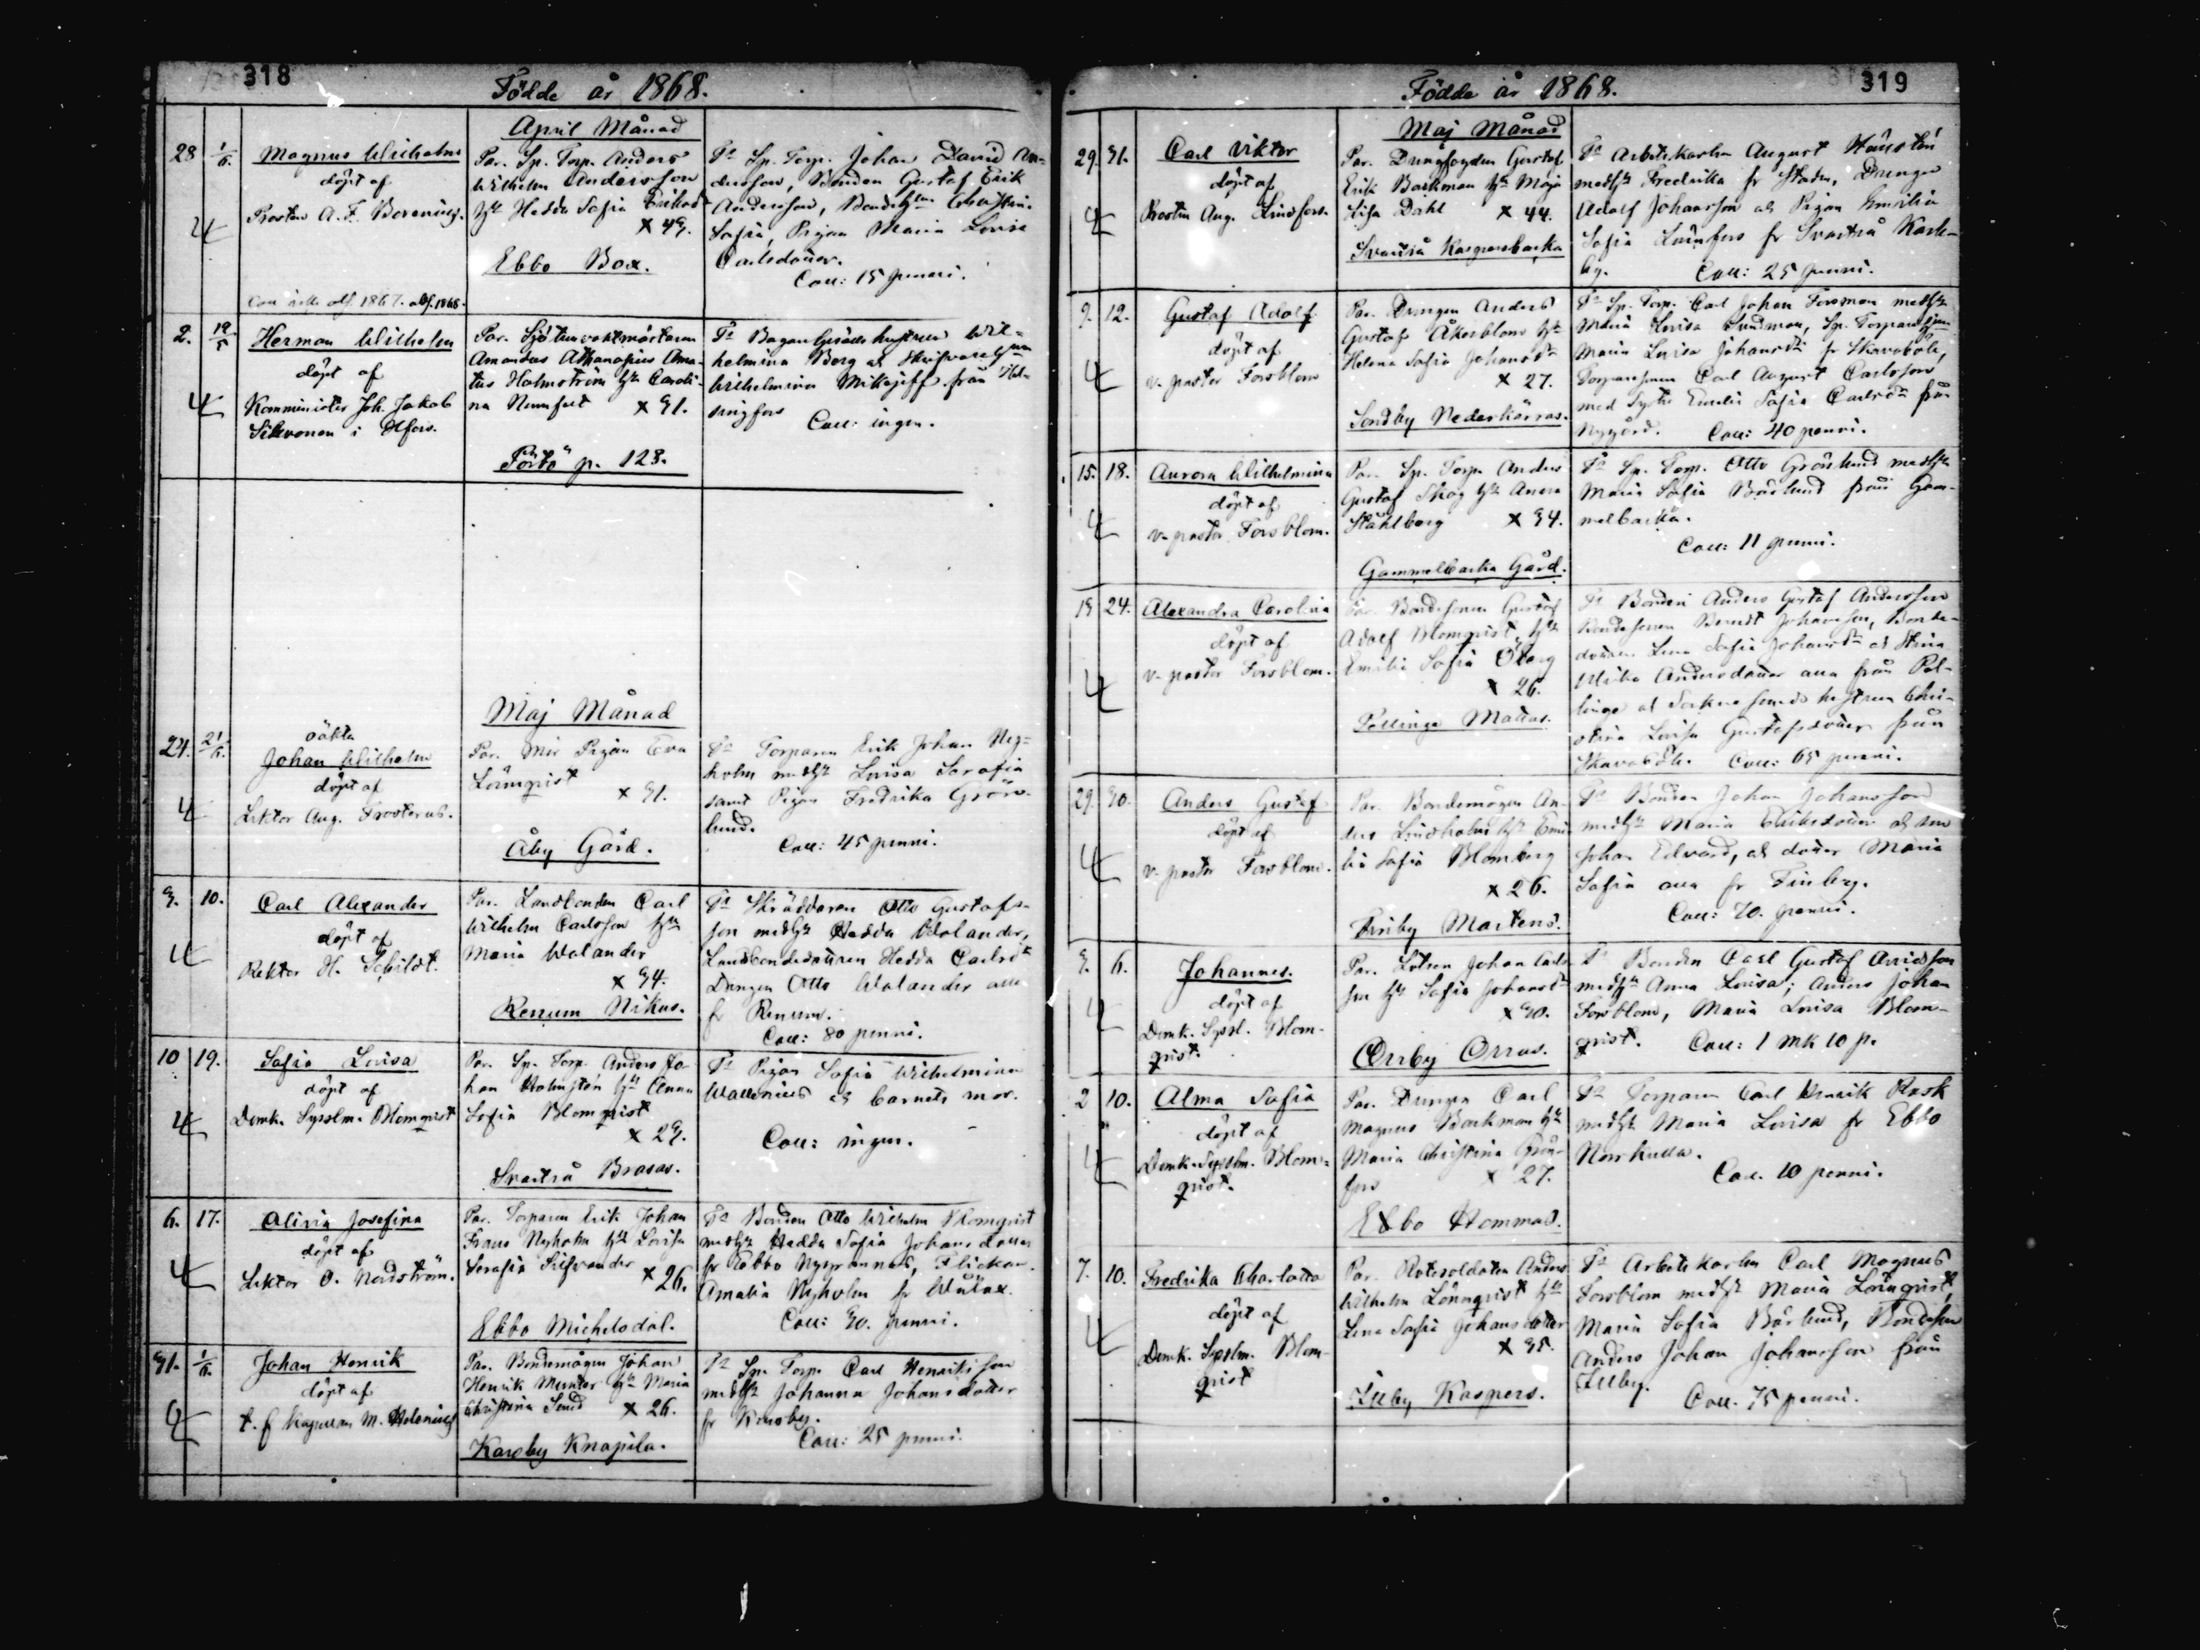 318
Födde år 1868.
April Månad
28 1/6. Magnus Wilhelm
döpt af
Prosten A. F. Borenius.
Par. Sp. Torp. Anders
Wilhelm Andersson
Hedda Sofia
x 43.
Ebbo Box.
Sp. Torp. Johan David An-
dersson, Bonden Gustaf Erik
Andersson,
Sofia, Pigan Maria Lovisa
Carlsdotter.
Coll: 15 penni.
1867. 1868.
2. 12/5 Herman Wilhelm
döpt af
Komminister Joh. Jakob
i Hfors.
Par.
Amandus Athanasius Ama-
tus Holmström Caroli-
na x 31.
Pörtö p. 123.
Wil-
helmina Borg
Wilhelmina från Hel-
singfors
Coll: ingen.
Maj Månad
24. 21/6. oäkta
Johan Wilhelm
döpt af
Lektor Aug. Frosterus.
Par. Pigan Eva
Lönnqvist
x 31.
Åby Gård.
Torparen Erik Johan Ny-
holm Lovisa Serafia
samt Pigan Fredrika Grön-
lund.
Coll: 45 penni.
3. 10. Carl Alexander
döpt af
Rektor H. Schildt.
Par. Landbonden Carl
Wilhelm Carlsson
Maria Walander
x 34.
Renum Nikus.
Skräddaren Otto Gustafs-
son Hedda Walander,
Landbondedottren Hedda
Drengen Otto Walander alla
fr Renum.
Coll: 80 penni.
10 19. Sofia Lovisa
döpt af
Domk. Sysslm. Blomqvist
Par. Sp. Torp. Anders Jo-
han Holmstén Anna
Sofia Blomqvist
x 23.
Svartså Brasas.
Pigan Sofia Wilhelmina
Wallenius barnets mor.
Coll: ingen.
6. 17. Alivia Josefina
döpt af
Lektor O. Nordström.
Par. Torparen Erik Johan
Frans Nyholm Lovisa
Serafia
x 26.
Ebbo Michelsdal.
Bonden Otto Wilhelm Blomqvist
Hedda Sofia Johansdotter
fr Ebbo Flickan
Amalia Nyholm fr
Coll: 30. penni.
31. 1/6. Johan Henrik
döpt af
t. f Kapellan M.
Par. Bondemågen Johan
Henrik Maria
Christina Sund x 26.
Karsby Knapila.
Sp. Torp. Carl Henriksson
Johanna Johansdotter
fr
Coll: 25 penni.
319
Födde år 1868.
Maj Månad
29. 31. Carl Viktor
döpt af
Prosten Aug. Lindfors.
Par. Drengfogden Gustaf
Erik Backman Maja
Lisa Dahl x 44.
Svartså Kasparsbacka
Arbetskarlen August
Fredrika fr Staden, Drengen
Adolf Johansson Pigan Emilia
Sofia fr Svartså Karls-
by. Coll: 25 penni.
9. 12. Gustaf Adolf
döpt af
v. pastor Forsblom
Par. Drengen Anders
Gustaf Åkerblom
Helena Sofia
x 27.
Sondby Nederkärras.
Sp. Torp. Carl Johan Forsman
Maria Lovisa Sundman, Sp.
Maria Lovisa fr Skavaböle,
Torparesonen Carl August Carlsson
med Emili Sofia från
Nygård. Coll: 40 penni.
15. 18. Aurora Wilhelmina
döpt af
v. pastor Forsblom.
Par. Sp. Torp. Anders
Gustaf Skog Anna
Ståhlberg x 34.
Gammelbacka Gård.
Sp. Torp. Otto Grönlund
Maria Sofia från Gam-
melbacka.
Coll: 11 penni.
19 24. Alexandra Carolina
döpt af
v. pastor Forsblom.
Par. Bondesonen Gustaf
Adolf Blomqvist,
Emilia Sofia Öberg
x 26.
Pellinge Mattas.
Bonden Anders Gustaf Andersson
Bondesonen Berndt Johansson, Bonde-
dottren Lena Sofia Stina
Ulrika Andersdotter alla från Pel-
linge hustrun Chri-
stina Lovisa Gustafsdotter från
Skavaböle. Coll: 65 penni.
29. 30. Anders Gustaf
döpt af
v. pastor Forsblom.
Par. Bondemågen An-
ders Lindholm Emi-
lia Sofia Blomberg
x 26.
Finby Martens.
Bonden Johan Johansson
Maria Eriksdotter son
Johan Edvard, dotter Maria
Sofia alla fr Finby.
Coll: 70. penni.
3. 6. Johannes.
döpt af
Domk. Syssl. Blom-
qvist.
Par. Lotsen Johan Carls-
son Sofia
x 30.
Orrby Orras.
Bonden Carl Gustaf Arvidsson
Anna Lovisa; Anders Johan
Forsblom, Maria Lovisa Blom-
qvist. Coll: 1 mk 10 p.
2 10. Alma Sofia
döpt af
Domk. Sysslm. Blom-
qvist.
Par. Drengen Carl
Magnus Backman
Maria Christina Grön-
fors x 27.
Ebbo Hommas.
Torparen Carl Henrik Rask
Maria Lovisa fr Ebbo
Norrkulla.
Coll. 10 penni.
7. 10. Fredrika Charlotta
döpt af
Domk. Sysslm. Blom-
qvist
Par. Rotesoldaten Anders
Wilhelm Lönnqvist
Lena Sofia Johansdotter
x 35.
Illby Kaspers.
Arbetskarlen Carl Magnus
Forsblom Maria Lönnqvist,
Maria Sofia Bärlund, Bondeson
Anders Johan Johansson från
Illby.
Coll. 75 penni.